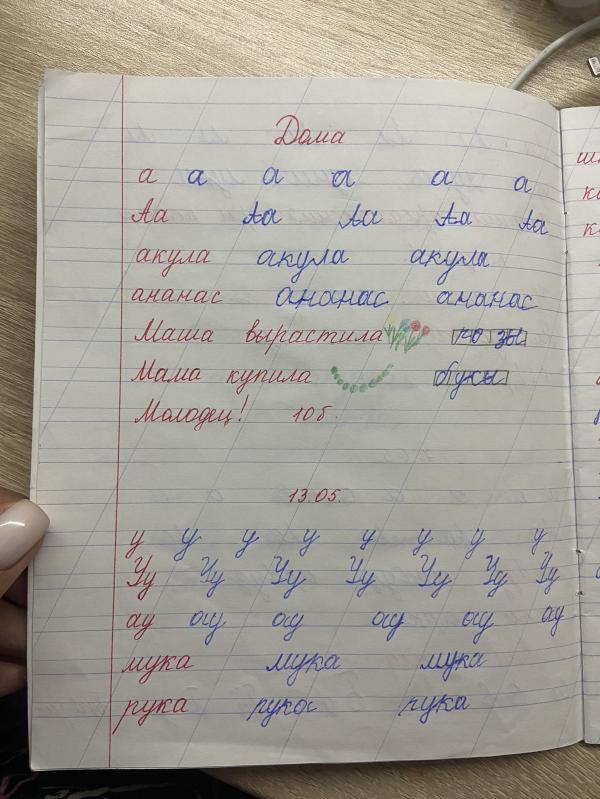 Дома
а а а а а а
Аа Аа Аа Аа Аа
акула акула акула
ананас ананас ананас
Маша вырастила
Мама купила бусы
Молодец! 10б.
13.05.
у у у у у у у у
Уу Уу Уу Уу Уу Уу Уу
ау ау ау ау ау ау
мука мука мука
рука рука рука
ш
ка
к